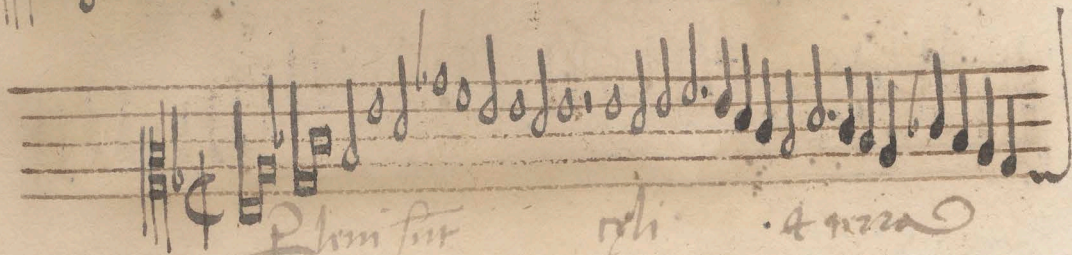 Pleni sunt celi et terra